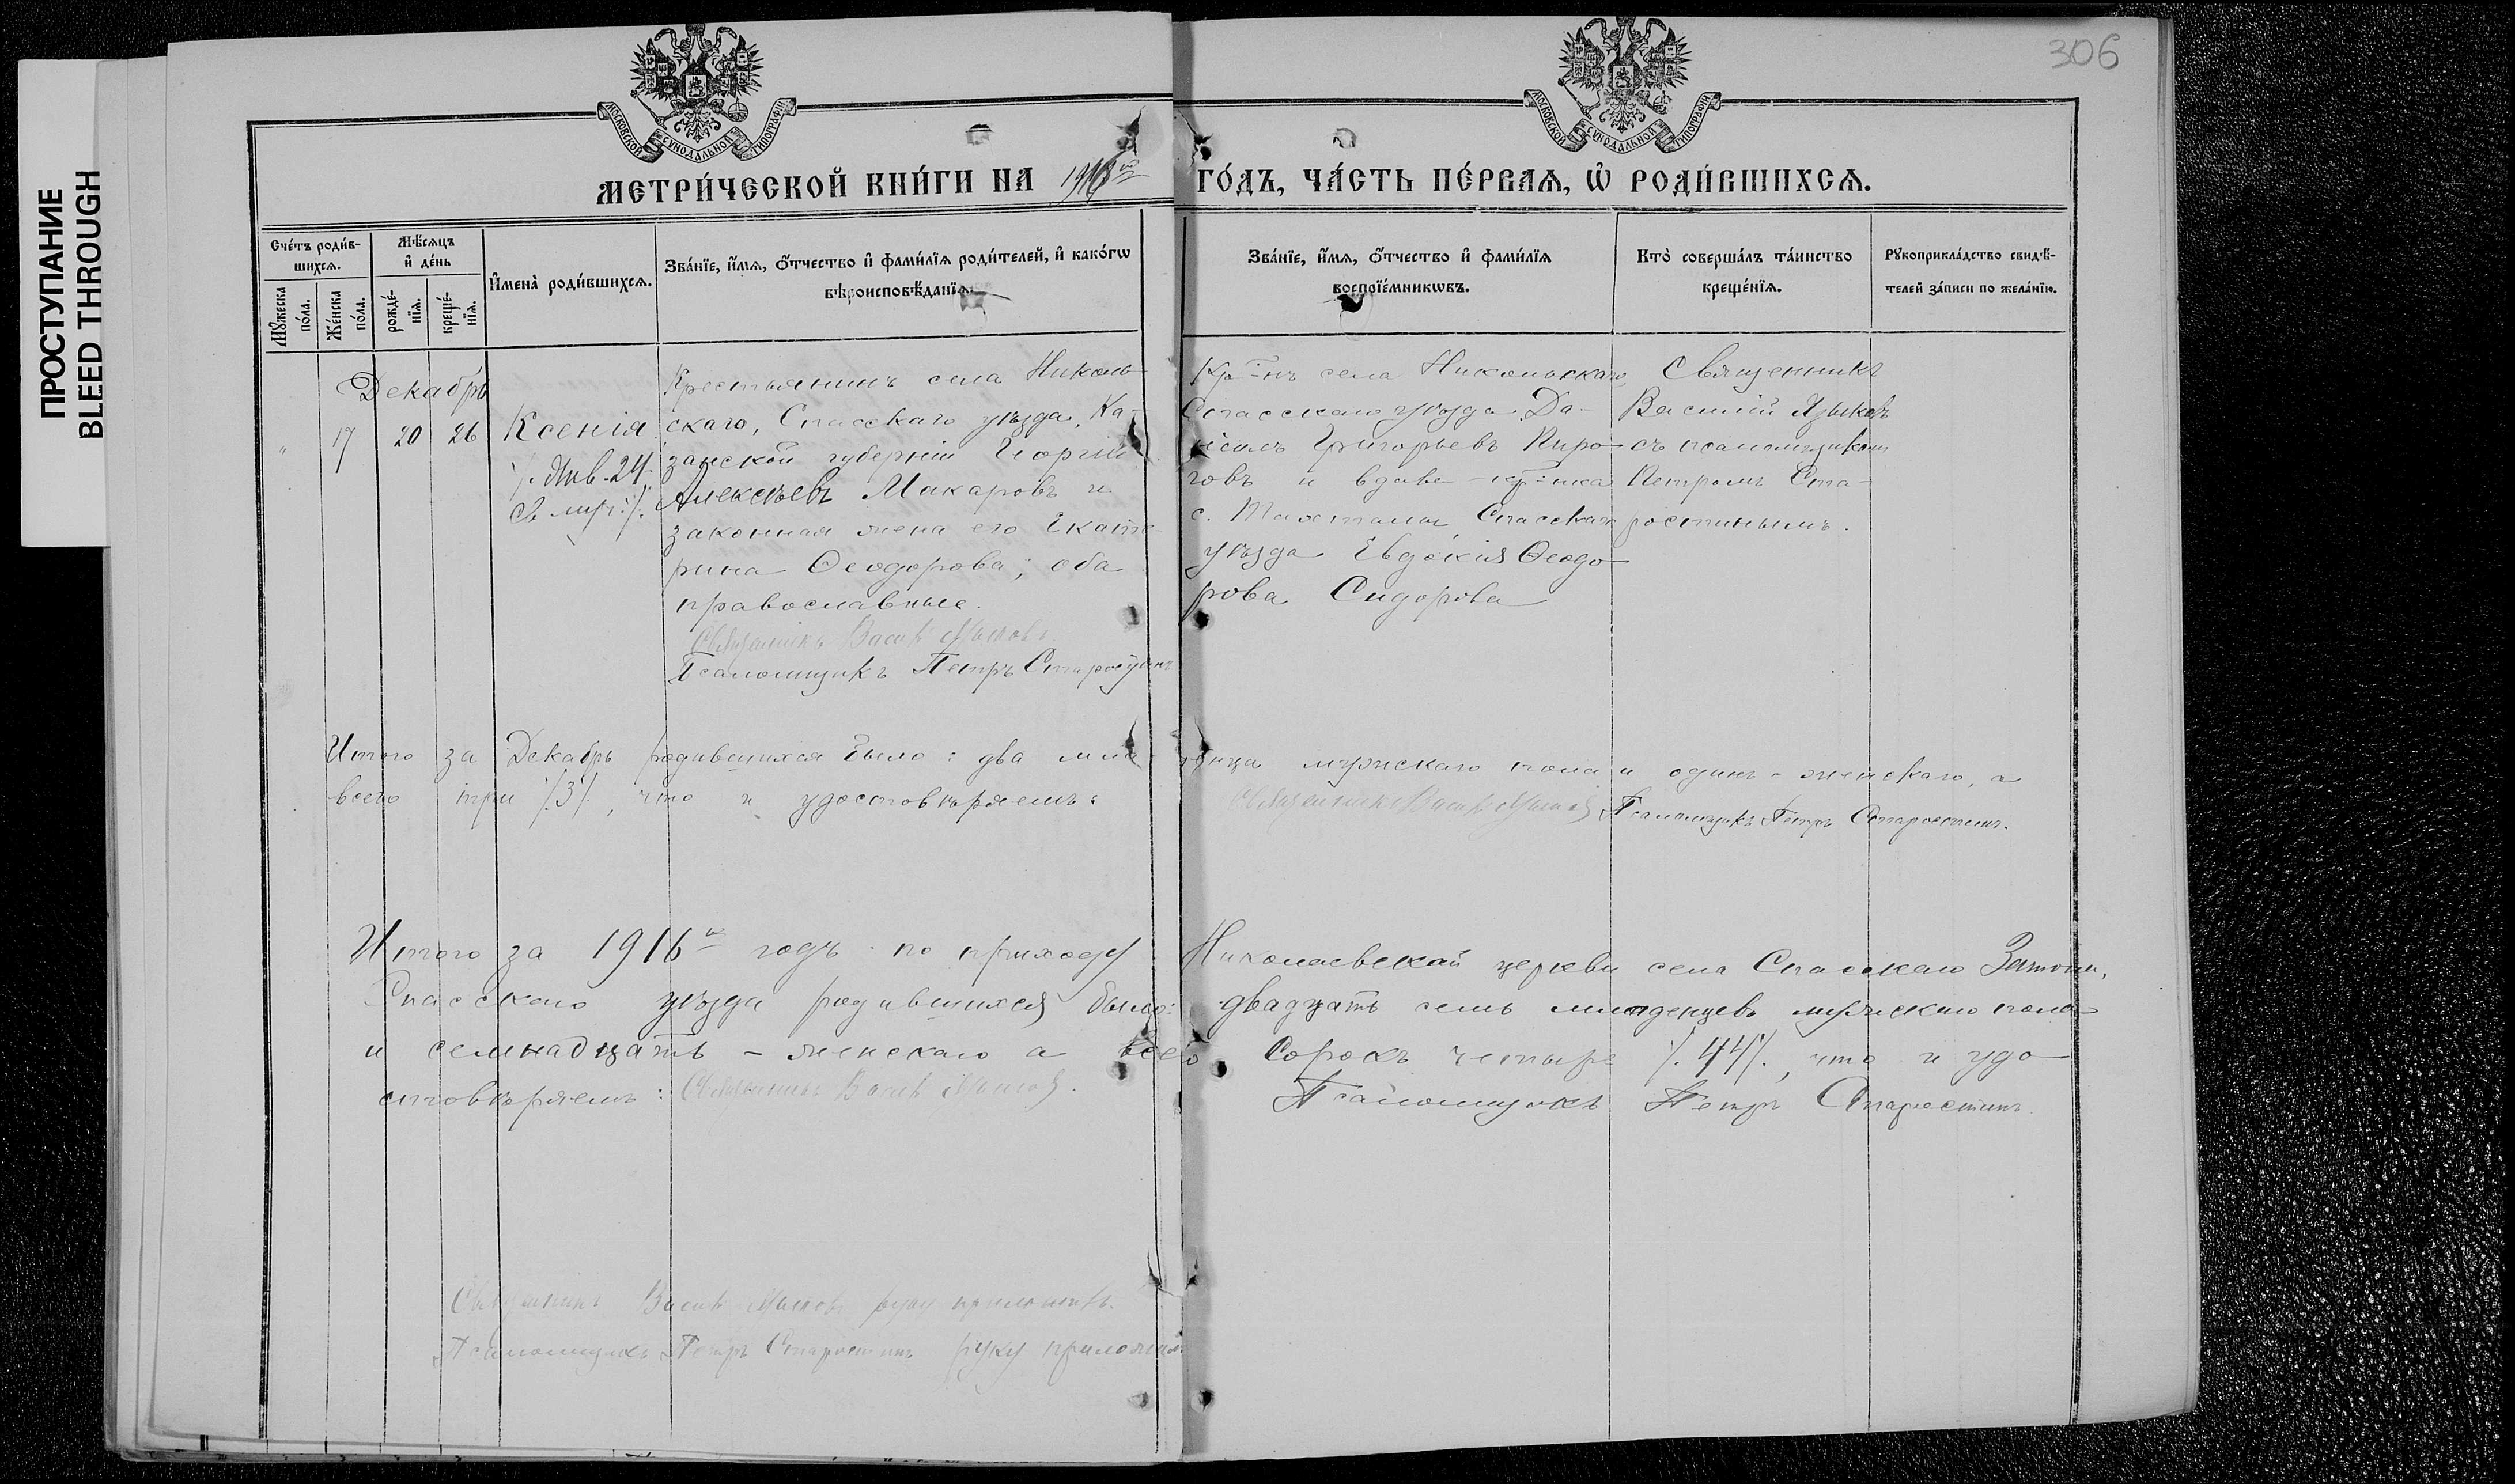 ПРОСТУПАНИЕ
BLEED THROUGH
306
МОСКОВСКОЙ СѴНОДАЛЬНОЙ ТИПОГРАФІИ
МОСКОВСКОЙ СѴНОДАЛЬНОЙ ТИПОГРАФІИ
МЕТРИ́ЧЕСКОЙ КНИ́ГИ НА 1916 го ГО́ДЪ, ЧА́СТЬ ПЕ́РВАѦ, Ѡ҆ РОДИ́ВШИХСѦ.
Сче́тъ роди́в-
шихсѧ.
Мꙋ́жеска по́ла.
Же́нска по́ла.
Мѣ́сѧцъ и҆ де́нь
рожде́-нїѧ.
креще́-нїѧ.
И҆мена̀ роди́вшихсѧ.
Зва́нїе, и҆́мѧ, ѻ҆́тчество и҆ фами́лїѧ роди́телей, и҆ како́гѡ
вѣроисповѣ́данїѧ.
Зва́нїе, и҆́мѧ, ѻ҆́тчество и҆ фами́лїѧ
воспрїе́мникѡвъ.
Кто̀ соверша́лъ та́инство
креще́нїѧ.
Рꙋкоприкла́дство свидѣ́-
телей за́писи по жела́нїю.
Декабрь
" 17 20 26 Ксенія
/. Янв. 24.
Крестьянинъ села Николь-
скаго, Спасскаго уѣзда, Ка-
занской губерніи Георгій
Алексѣевъ Макаровъ и
законная жена его Екате-
рина Ѳеодорова; оба
православные.
Священникъ Васил Языковъ
Псаломщикъ Петръ Старостинъ
Кр-нъ села Никольскаго,
Спасскаго уѣзда Да-
ніилъ Григорьевъ Пиро-
говъ и вдова кр-нка
с. Спасскаго
уѣзда Евдокія Ѳеодо-
рова Сидорова
Священникъ
Василій Языковъ
съ псаломщикомъ
Петромъ Ста-
ростинымъ.
Итого за Декабрь родившихся было: два младенца мужскаго пола и одинъ - женскаго, а
всего три /.3/., что и удостовѣряемъ: Священникъ Васил Языковъ Псаломщикъ Петръ Старостинъ.
Итого за 1916 й годъ по приходу Николаевской церкви села Спасскаго Затона,
Спасскаго уѣзда родившихся было: двадцать семь младенцевъ мужскаго пола
и семнадцать - женскаго а всего сорокъ четыре /.44/., что и удо-
стовѣряемъ: Священникъ Васил Языковъ. Псаломщикъ Петръ Старостинъ.
Священникъ Васил Языковъ руку приложилъ.
Псаломщикъ Петръ Старостинъ руку приложилъ.